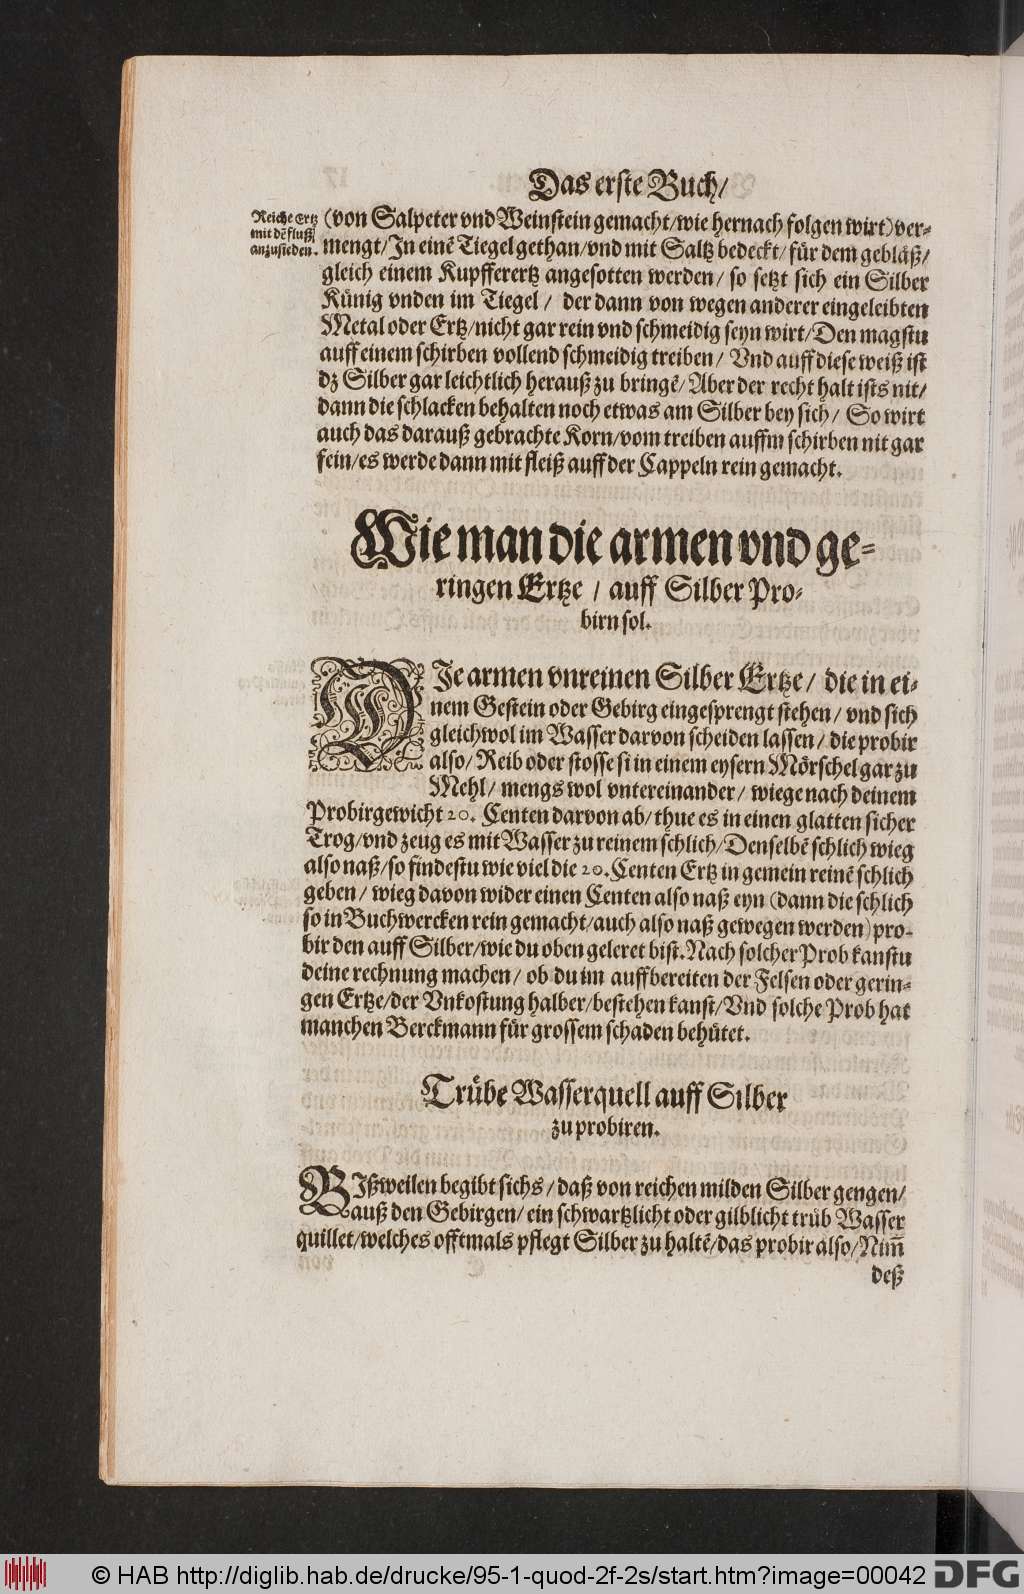 Das erste Buch/
Reiche Ertz
mit dẽ fluß
anzusieden.
(von Salpeter vnd Weinstein gemacht/wie hernach folgen wirt)ver-
mengt/In einẽ Tiegel gethan/vnd mit Saltz bedeckt/fuͤr dem geblaͤß/
gleich einem Kupfferertz angesotten werden/ so setzt sich ein Silber
Kuͤnig vnden im Tiegel / der dann von wegen anderer eingeleibten
Metal oder Ertz/nicht gar rein vnd schmeidig seyn wirt/Den magstu
auff einem schirben vollend schmeidig treiben/ Vnd auff diese weiß ist
dz Silber gar leichtlich herauß zu bringẽ/Aber der recht halt ists nit/
dann die schlacken behalten noch etwas am Silber bey sich/ So wirt
auch das darauß gebrachte Korn/vom treiben auffm schirben nit gar
fein/es werde dann mit fleiß auff der Cappeln rein gemacht.
Wie man die armen vnd ge-
ringen Ertze / auff Silber Pro-
birn sol.
DIe armen vnreinen Silber Ertze/ die in ei-
nem Gestein oder Gebirg eingesprengt stehen/ vnd sich
gleichwol im Wasser darvon scheiden lassen/ die probir
also/ Reib oder stosse si in einem eysern Moͤrschel gar zu
Mehl/ mengs wol vntereinander/ wiege nach deinem
Probirgewicht 20. Centen darvon ab/thue es in einen glatten sicher
Trog/vnd zeug es mit Wasser zu reinem schlich/Denselbẽ schlich wieg
also naß/so findestu wie viel die 20.Centen Ertz in gemein reinẽ schlich
geben/ wieg davon wider einen Centen also naß eyn (dann die schlich
so in Buchwercken rein gemacht/auch also naß gewegen werden)pro-
bir den auff Silber/wie du oben geleret bist.Nach solcher Prob kanstu
deine rechnung machen/ ob du im auffbereiten der Felsen oder gerin-
gen Ertze/der Vnkostung halber/bestehen kanst/Vnd solche Prob hat
manchen Berckmann fuͤr grossem schaden behuͤtet.
Truͤbe Wasserquell auff Silber
zu probiren.
BIßweilen begibt sichs/daß von reichen milden Silber gengen/
auß den Gebirgen/ein schwartzlicht oder gilblicht truͤb Wasser
quillet/welches offtmals pflegt Silber zu haltẽ/das probir also/Nim̃
deß
© HAB http://diglib.hab.de/drucke/95-1-quod-2f-2s/start.htm?image=00042
DFG